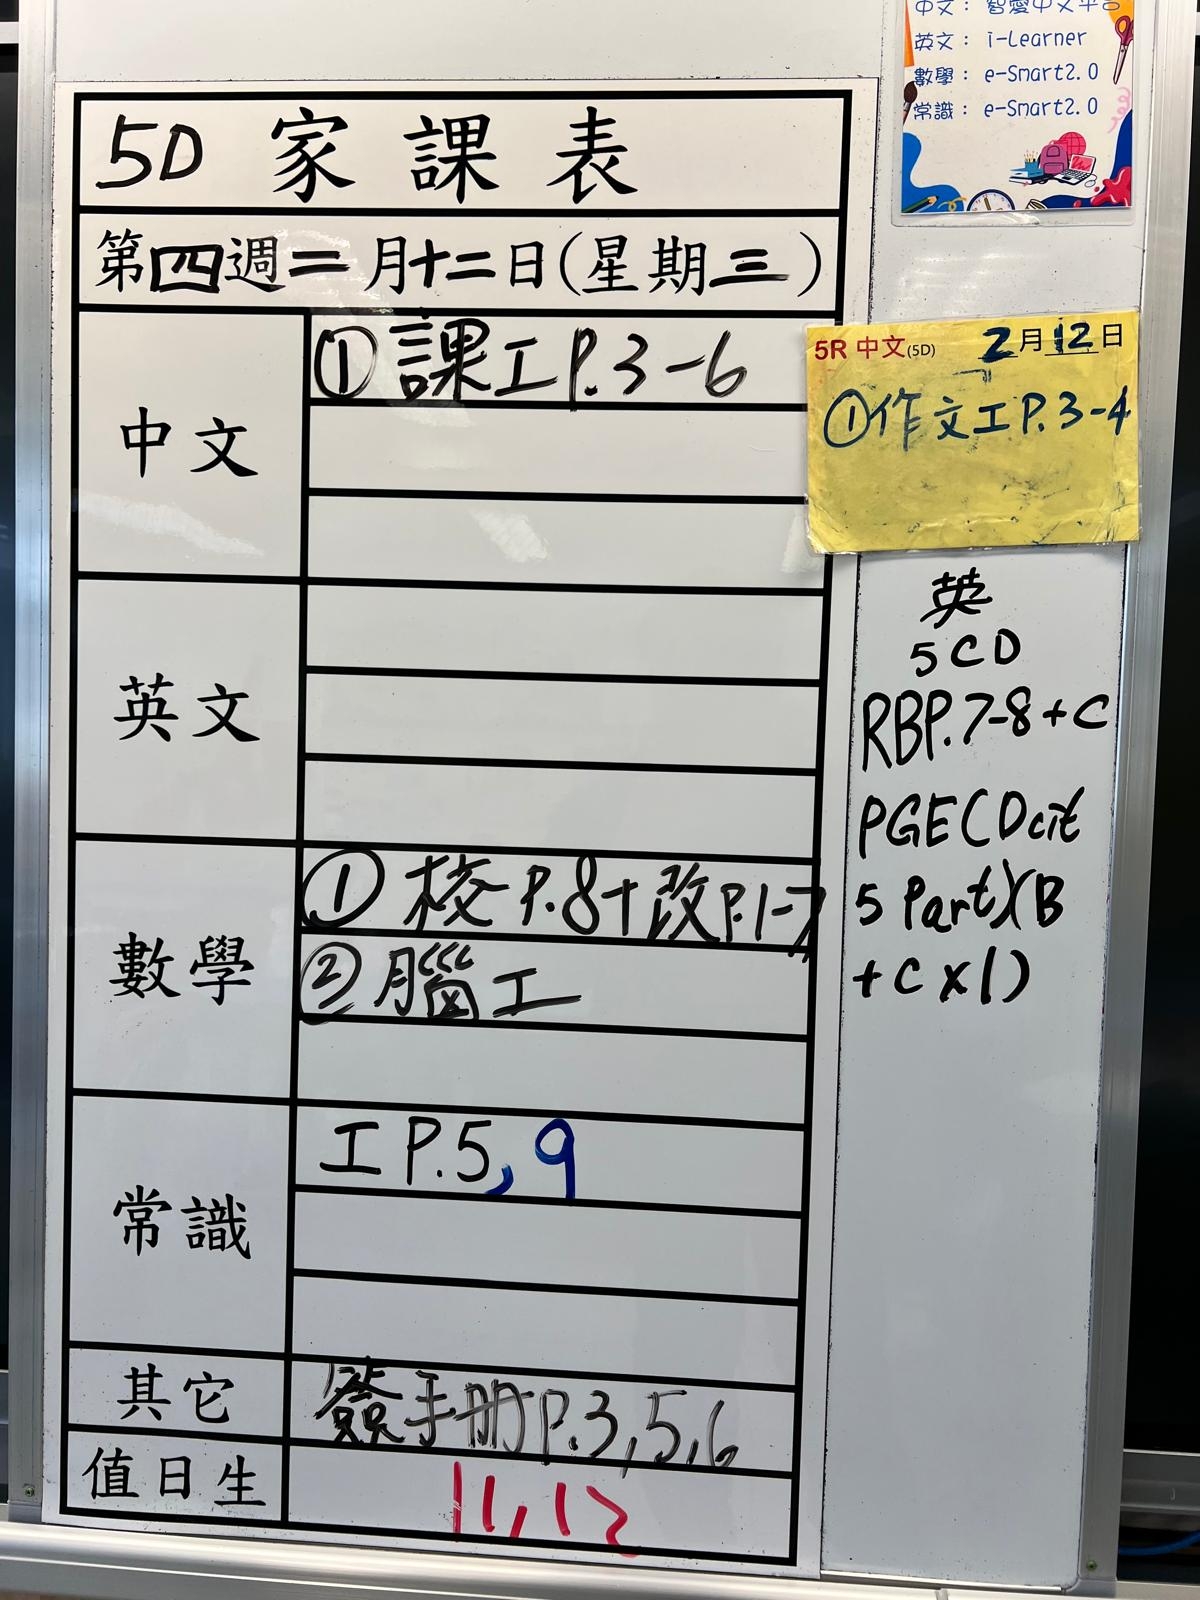 中文： 智愛中文平台
英文： i-Learner
數學： e-Smart2.0
常識： e-Smart2.0
5D 家課表
第四週二月十二日(星期三)
中文
① 課工P.3-6
5R 中文(5D) 2月12日
①作文工P.3-4
英文
英
5CD
RBP.7-8+C
PGE(Dcit
5 Part)(B
+C x1)
數學
① 校 P.8+改P.1-7
② 腦工
常識
工P.5,9
其它
簽手冊P.3,5,6
值日生
11,12